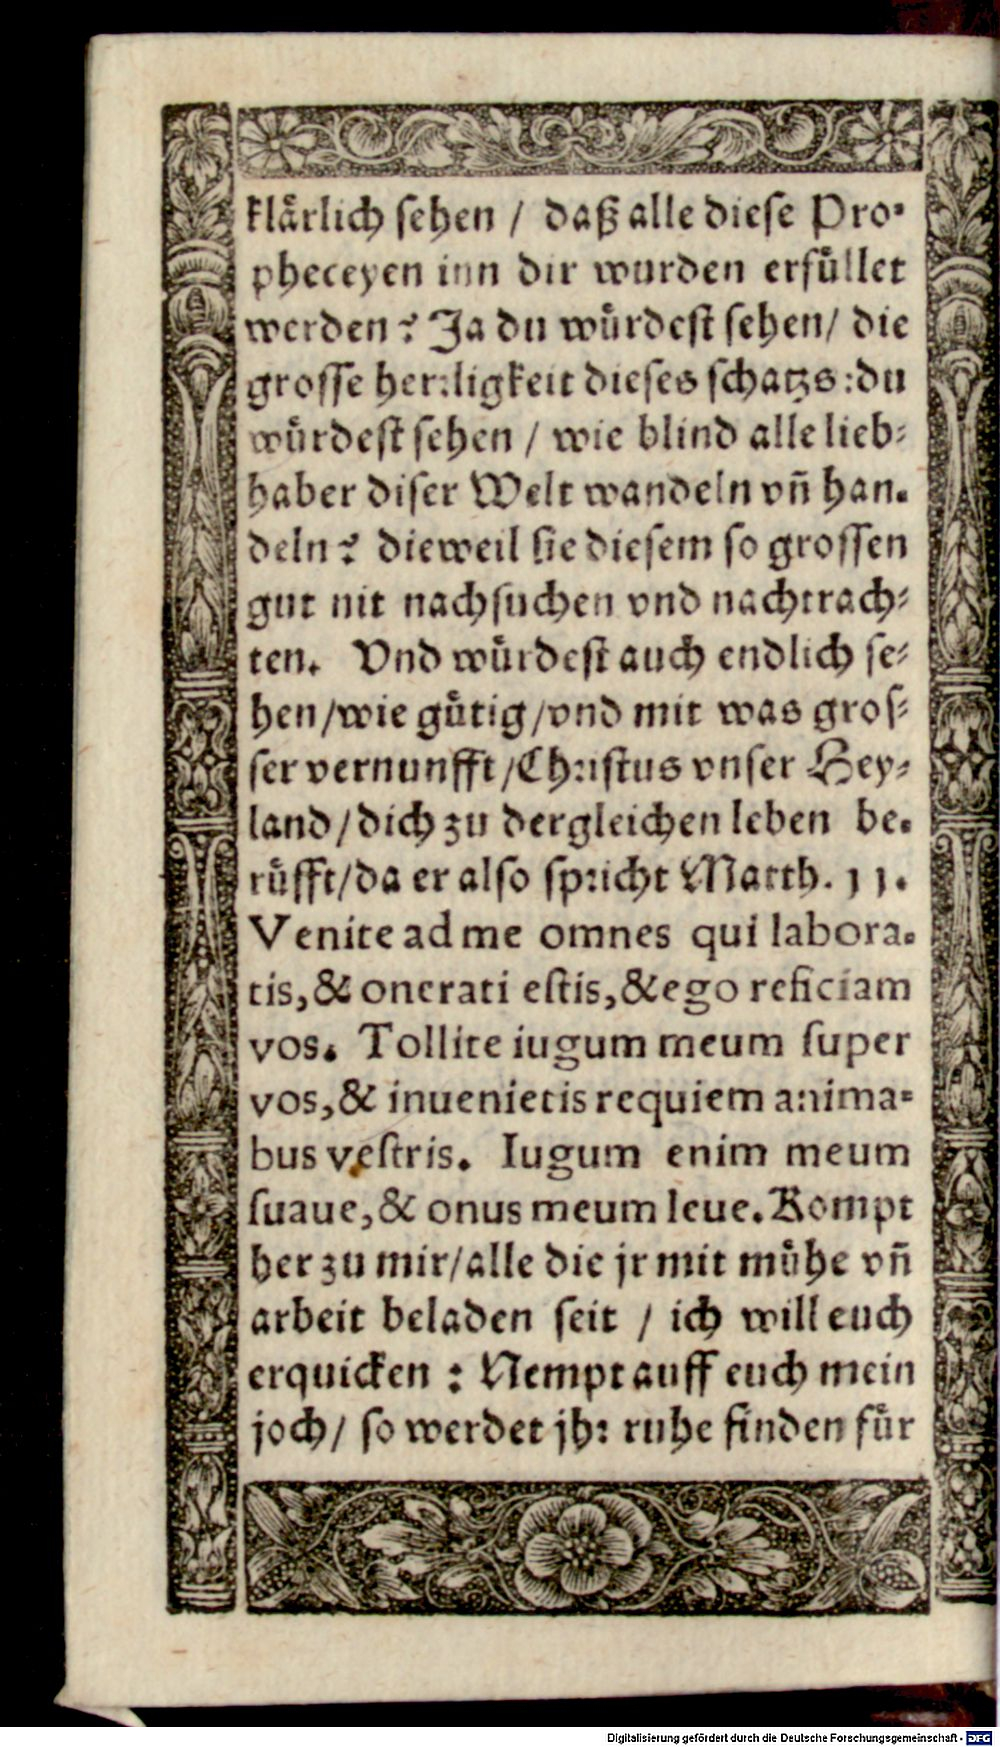 klaͤrlich sehen / daß alle diese Pro-
pheceyen inn dir wurden erfuͤllet
werden? Ja du wuͤrdest sehen/ die
grosse herꝛligkeit dieses schatzs: du
wuͤrdest sehen / wie blind alle lieb-
haber diser Welt wandeln vñ han-
deln? dieweil sie diesem so grossen
gut nit nachsuchen vnd nachtrach-
ten. Vnd wuͤrdest auch endlich se-
hen/wie guͤtig/vnd mit was gros-
ser vernunfft/Chꝛistus vnser Hey-
land/dich zu dergleichen leben be-
ruͤfft/da er also spꝛicht Matth. 11.
Venite ad me omnes qui labora-
tis, & onerati eſtis, & ego reficiam
vos. Tollite iugum meum ſuper
vos, & inuenietis requiem anima-
bus veſtris. Iugum enim meum
ſuaue, & onus meum leue. Kompt
her zu mir/alle die jr mit muͤhe vñ
arbeit beladen seit / ich will euch
erquicken : Nempt auff euch mein
joch/ so werdet jhꝛ ruhe finden fuͤr
Digitalisierung gefördert durch die Deutsche Forschungsgemeinschaft - DFG